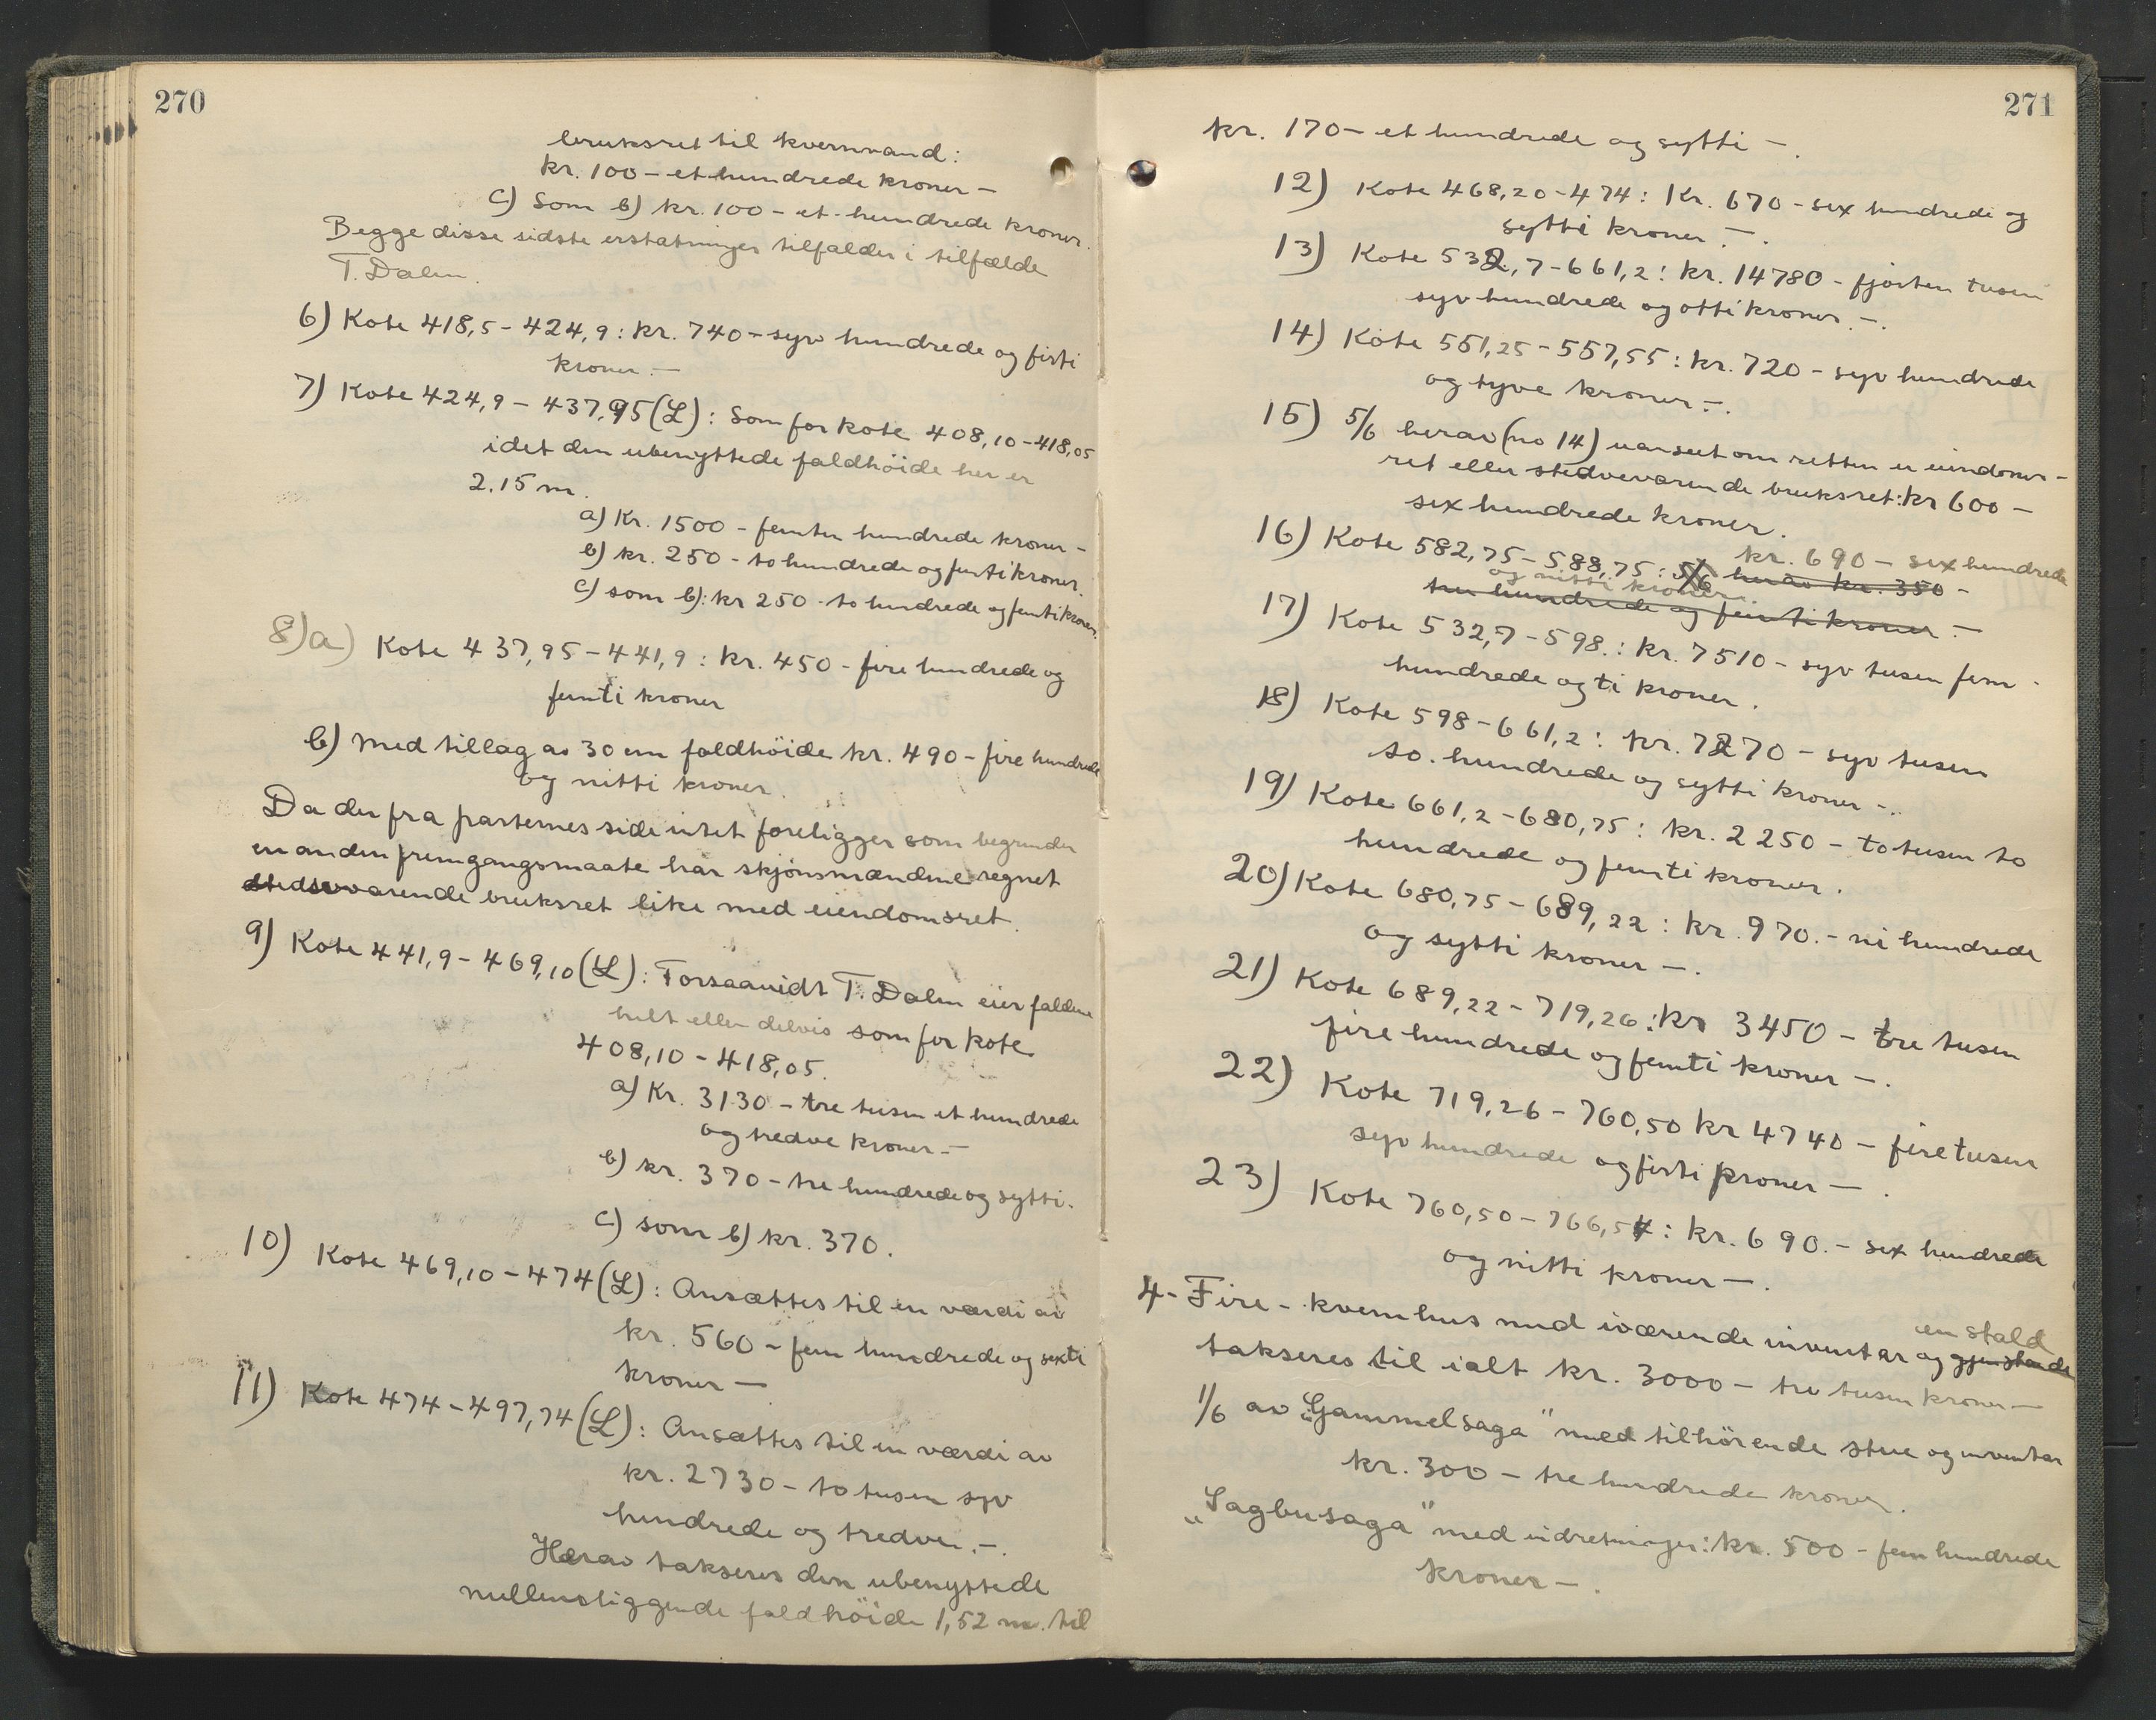 270
bruksret til kvernvand:
kr. 100 - et hundrede kroner -
c) Som b) kr. 100 - et hundrede kroner.
Begge disse sidste erstatninger tilfalder i tilfælde
T. Dalen.
6) Kote 418,5 - 424,9: kr. 740 - syv hundrede og firti
kroner. -
7) Kote 424,9 - 437,95 (L): Som for kote 408,10 - 418,05
idet den ubenyttede faldhöide her er
2,15 m.
a) Kr. 1500 - femten hundrede kroner -
b) kr. 250 - to hundrede og femti kroner.
c) som b): kr 250 - to hundrede og femti kroner.
8)a) Kote 437,95 - 441,9: kr. 450 - fire hundrede og
femti kroner
b) med tillæg av 30 cm faldhöide kr. 490 - fire hundrede
og nitti kroner.
Da der fra parternes side intet foreligger som begrunder
en anden fremgangsmaate har skjönsmændene regnet
stedsevarende bruksret like med eiendomsret.
9) Kote 441,9 - 469,10 (L): Forsaavidt T. Dalen eier faldene
helt eller delvis som for kote
408,10 - 418,05.
a) Kr. 3130 - tre tusen et hundrede
og tredve kroner -
b) kr. 370 - tre hundrede og sytti.
c) som b) kr. 370.
10) Kote 469,10 - 474 (L): Ansættes til en værdi av
kr. 560 - fem hundrede og sexti
kroner -
11) Kote 474 - 497,74 (L): Ansættes til en værdi av
kr. 2730 - to tusen syv
hundrede og tredve. -.
Herav takseres den ubenyttede
mellemliggende faldhöide 1,52 m. til
271
kr. 170 - et hundrede og sytti -.
12) Kote 468,20 - 474: Kr. 670 - sex hundrede og
sytti kroner. -.
13) Kote 532,7 - 661,2: kr. 14780 - fjorten tusen
syv hundrede og otti kroner. -.
14) Kote 551,25 - 557,55: kr. 720 - syv hundrede
og tyve kroner. -.
15) 5/6 herav (no 14) uanseet om retten er eiendoms-
ret eller stedvevarende bruksret: kr 600 -
sex hundrede kroner.
kr. 690 - sex hundrede
16) Kote 582,75 - 588,75: 5/6 herav kr. 350 -
og nitti kroner.
tre hundrede og femti kroner -
17) Kote 532,7 - 598.: kr. 7510 - syv tusen fem -
hundrede og ti kroner.
18) Kote 598 - 661,2: kr. 7270 - syv tusen
to hundrede og sytti kroner -.
19) Kote 661,2 - 680,75: kr. 2250 - to tusen to
hundrede og femti kroner.
20) Kote 680,75 - 689,22: kr. 970. - ni hundrede
og sytti kroner -.
21) Kote 689,22 - 719,26: kr 3450 - tre tusen
fire hundrede og femti kroner -.
22) Kote 719,26 - 760,50 kr 4740 - fire tusen
syv hundrede og firti kroner -.
23) Kote 760,50 - 766,54: kr. 690. - sex hundrede
og nitti kroner -.
en stald
4 - Fire - kvernhus med iværende inventar og gjenstande
takseres til ialt kr. 3000 - tre tusen kroner -
1/6 av "Gammelsaga" med tilhörende stue og inventar
kr. 300 - tre hundrede kroner.
"Sagbusaga" med indretninger: kr. 500 - fem hundrede
kroner -.